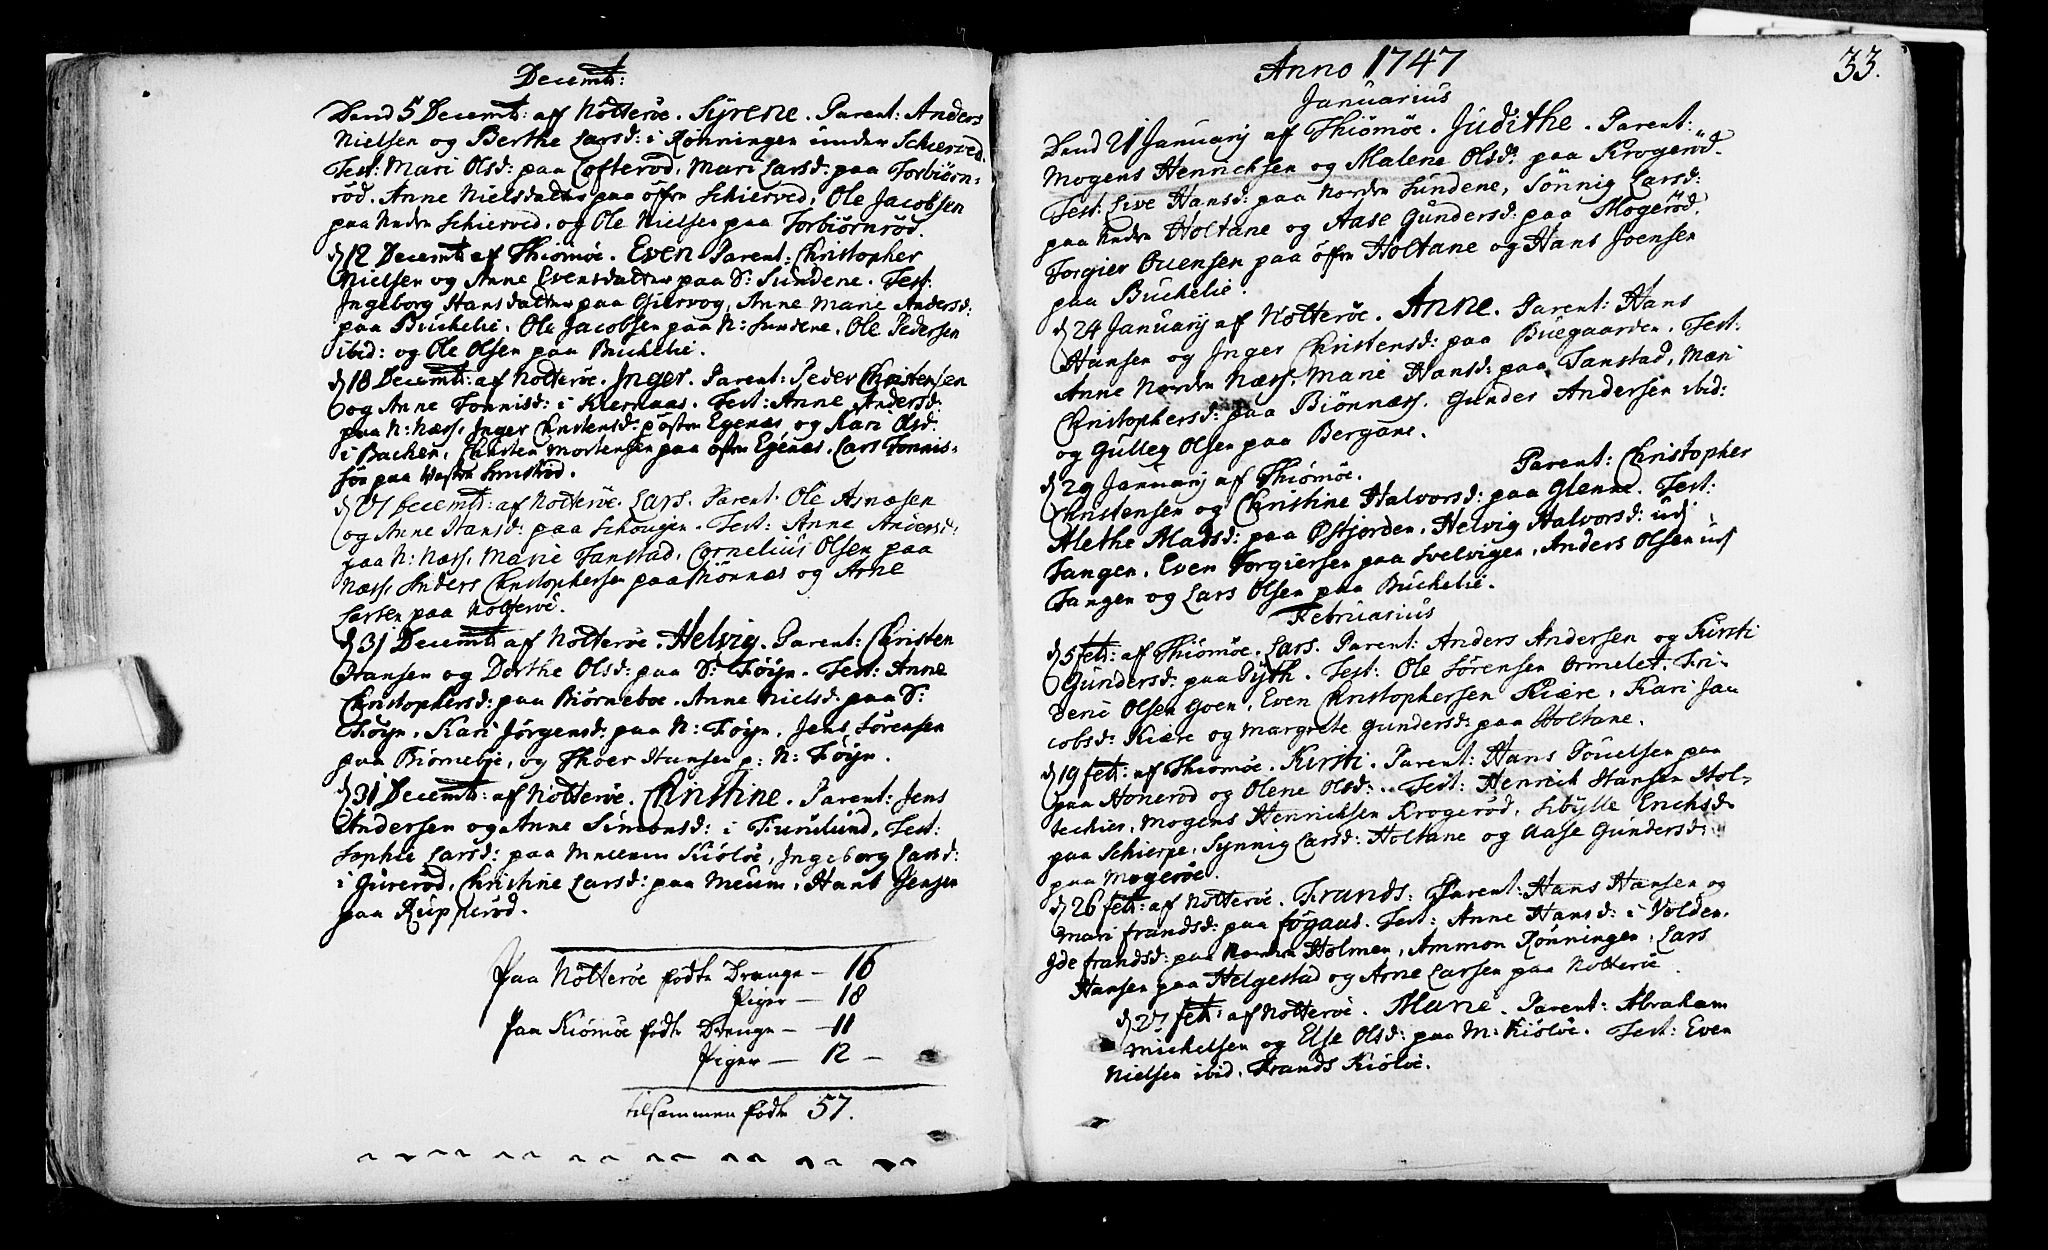 Decembr:
Dend 5 Decembr: af Nötteröe. Syrene. Parent: Anders
Nielsen og Berthe Larsd: i Rönningen under Schierved.
Test: Mari Olsd: paa Lofteröd, Mari Larsd: paa Torbiörn-
röd. Anne Nielsdatter paa öfre Schierved, Ole Jacobsen
paa nedre Schierved, og Ole Nielsen paa Torbiörnröd.
d 12 Decembr af Thiömöe. Even. Parent: Christopher
Nielsen og Anne Evensdatter paa S: Sundene. Test:
Ingeborg Hansdatter paa Giervog, Anne Marie Andersd:
paa Buchelie, Ole Jacobsen paa N: Sundene, Ole Pedersen
ibid: og Ole Olsen paa Buchelie.
d 18 Decembr: af Nötteröe. Inger. Parent: Peder Christensen
og Anne Tonnisd: i Kiernaas. Test: Anne Andersd:
paa N: Næss, Inger Christensd: p östre Egenæs, og Kari Olsd:
i Backen, Christen Mortensen paa östre Egenæs, Lars Tonnis-
sön paa Westre Smidsröd.
d 27 Decembr: af Nötteröe. Lars. Parent: Ole Arnæsen
og Anne Hansd: paa Schougen. Test: Anne Andersd:
paa N: Næss, Marie Tanstad, Cornelius Olsen paa
Næss, Anders Christophersen paa Biönnæs og Arne
Larsen paa Nötteröe.
d 31 Decembr af Nötteröe. Helvig. Parent: Christen
Hansen og Dorthe Olsd: paa S: Föyn. Test: Anne
Christophersd: paa Biörneboe, Anne Nielsd: paa S:
Föyn, Kari Jörgensd: paa N: Föyn, Jens Sörensen
paa Biörneboe, og Thoer Hansen p: N: Föyn.
d 31 Decembr: af Nötteröe. Christine. Parent: Jens
Andersen og Anne Simonsd: i Furulund, Test:
Sophie Larsd: paa Mellem Kiölöe, Ingeborg Larsd:
i Gureröd, Christine Larsd: paa Meum, Hans Jensen
paa Ruperöd.
Paa Nötteröe födte Drenge — 16
Piger — 18
Paa Kiömöe födte Drenge — 11
Piger — 12 —
tilsammen födte 57.
33.
Anno 1747
Januarius
Dend 21 Januarij af Thiömöe. Judithe. Parent:
Mogens Henrichsen og Malene Olsd: paa Krogeröd.
Test: Live Hansd: paa Nordre Sundene, Sönnig Larsd:
paa nedre Holtane og Aase Gundersd: paa Mogeröd,
Torgier Ouensen paa öfre Holtane og Hans Joensen
paa Buchelie.
d 24 Januarij af Nötteröe. Anne. Parent: Hans
Hansen og Inger Christensd: paa Buegaarden. Test:
Anne Nordre Næss, Marie Hansd: paa Tanstad, Mari
Christophersd: paa Biönnæss, Gunder Andersen ibid:
og Gulleg Olsen paa Bergane.
d 29 Januarij af Thiömöe. Parent: Christopher
Christensen og Christine Halvorsd: paa Glenne. Test:
Alethe Madsd: paa Östjorden, Helvig Halvorsd: udi
Tangen, Even Torgiersen paa Svelvigen, Anders Olsen udi
Tangen og Lars Olsen paa Buchelie.
Februarius
d 5 febr: af Thiömöe. Lars. Parent: Anders Andersen og Kirsti
Gundersd: paa Pyth. Test: Ole Sörensen Ormelet, Fri-
derie Olsen Goen, Even Christophersen Kiære, Kari Jaa
cobsd: Kiære og Margrete Gundersd: paa Holtane.
d 19 febr: af Thiömöe. Kirsti. Parent: Hans Pouelsen paa
paa Honeröd og Olene Olsd: Test: Henrick Hansen Hol-
techier, Mogens Henrichsen Krogeröd, Sibylle Erichsd:
paa Schierpe, Synnig Larsd: Holtane og Aasse Gundersd:
paa Mogeröe.
d 26 febr: af Nötteröe. Frands: Parent: Hans Hansen og
Mari frandsd: paa Fögaas. Test: Anne Hansd: i Volden,
Ide frandsd: paa Nordre Holmen, Ammon Rönningen, Lars
Hansen paa Helgestad og Arne Larsen paa Nötteröe.
d 27 febr: af Nötteröe. Marie. Parent: Abraham
Michelsen og Else Olsd: paa M: Kiölöe. Test: Even
Nielsen ibid, Frands Kiölöe.